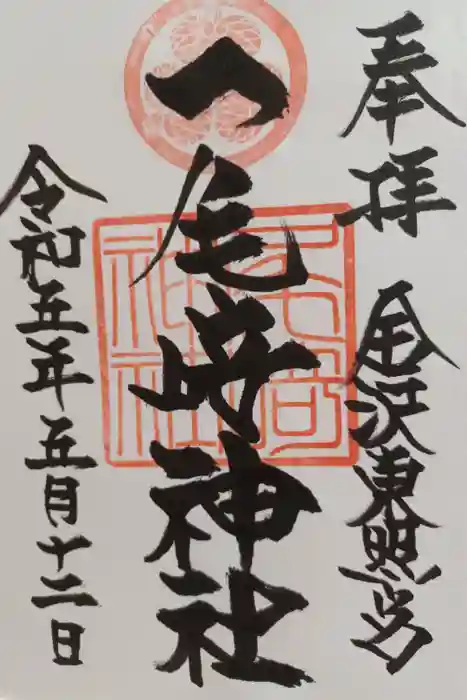 奉拝 金沢東照宮
尾崎神社
令和五年五月十二日
尾崎
神社